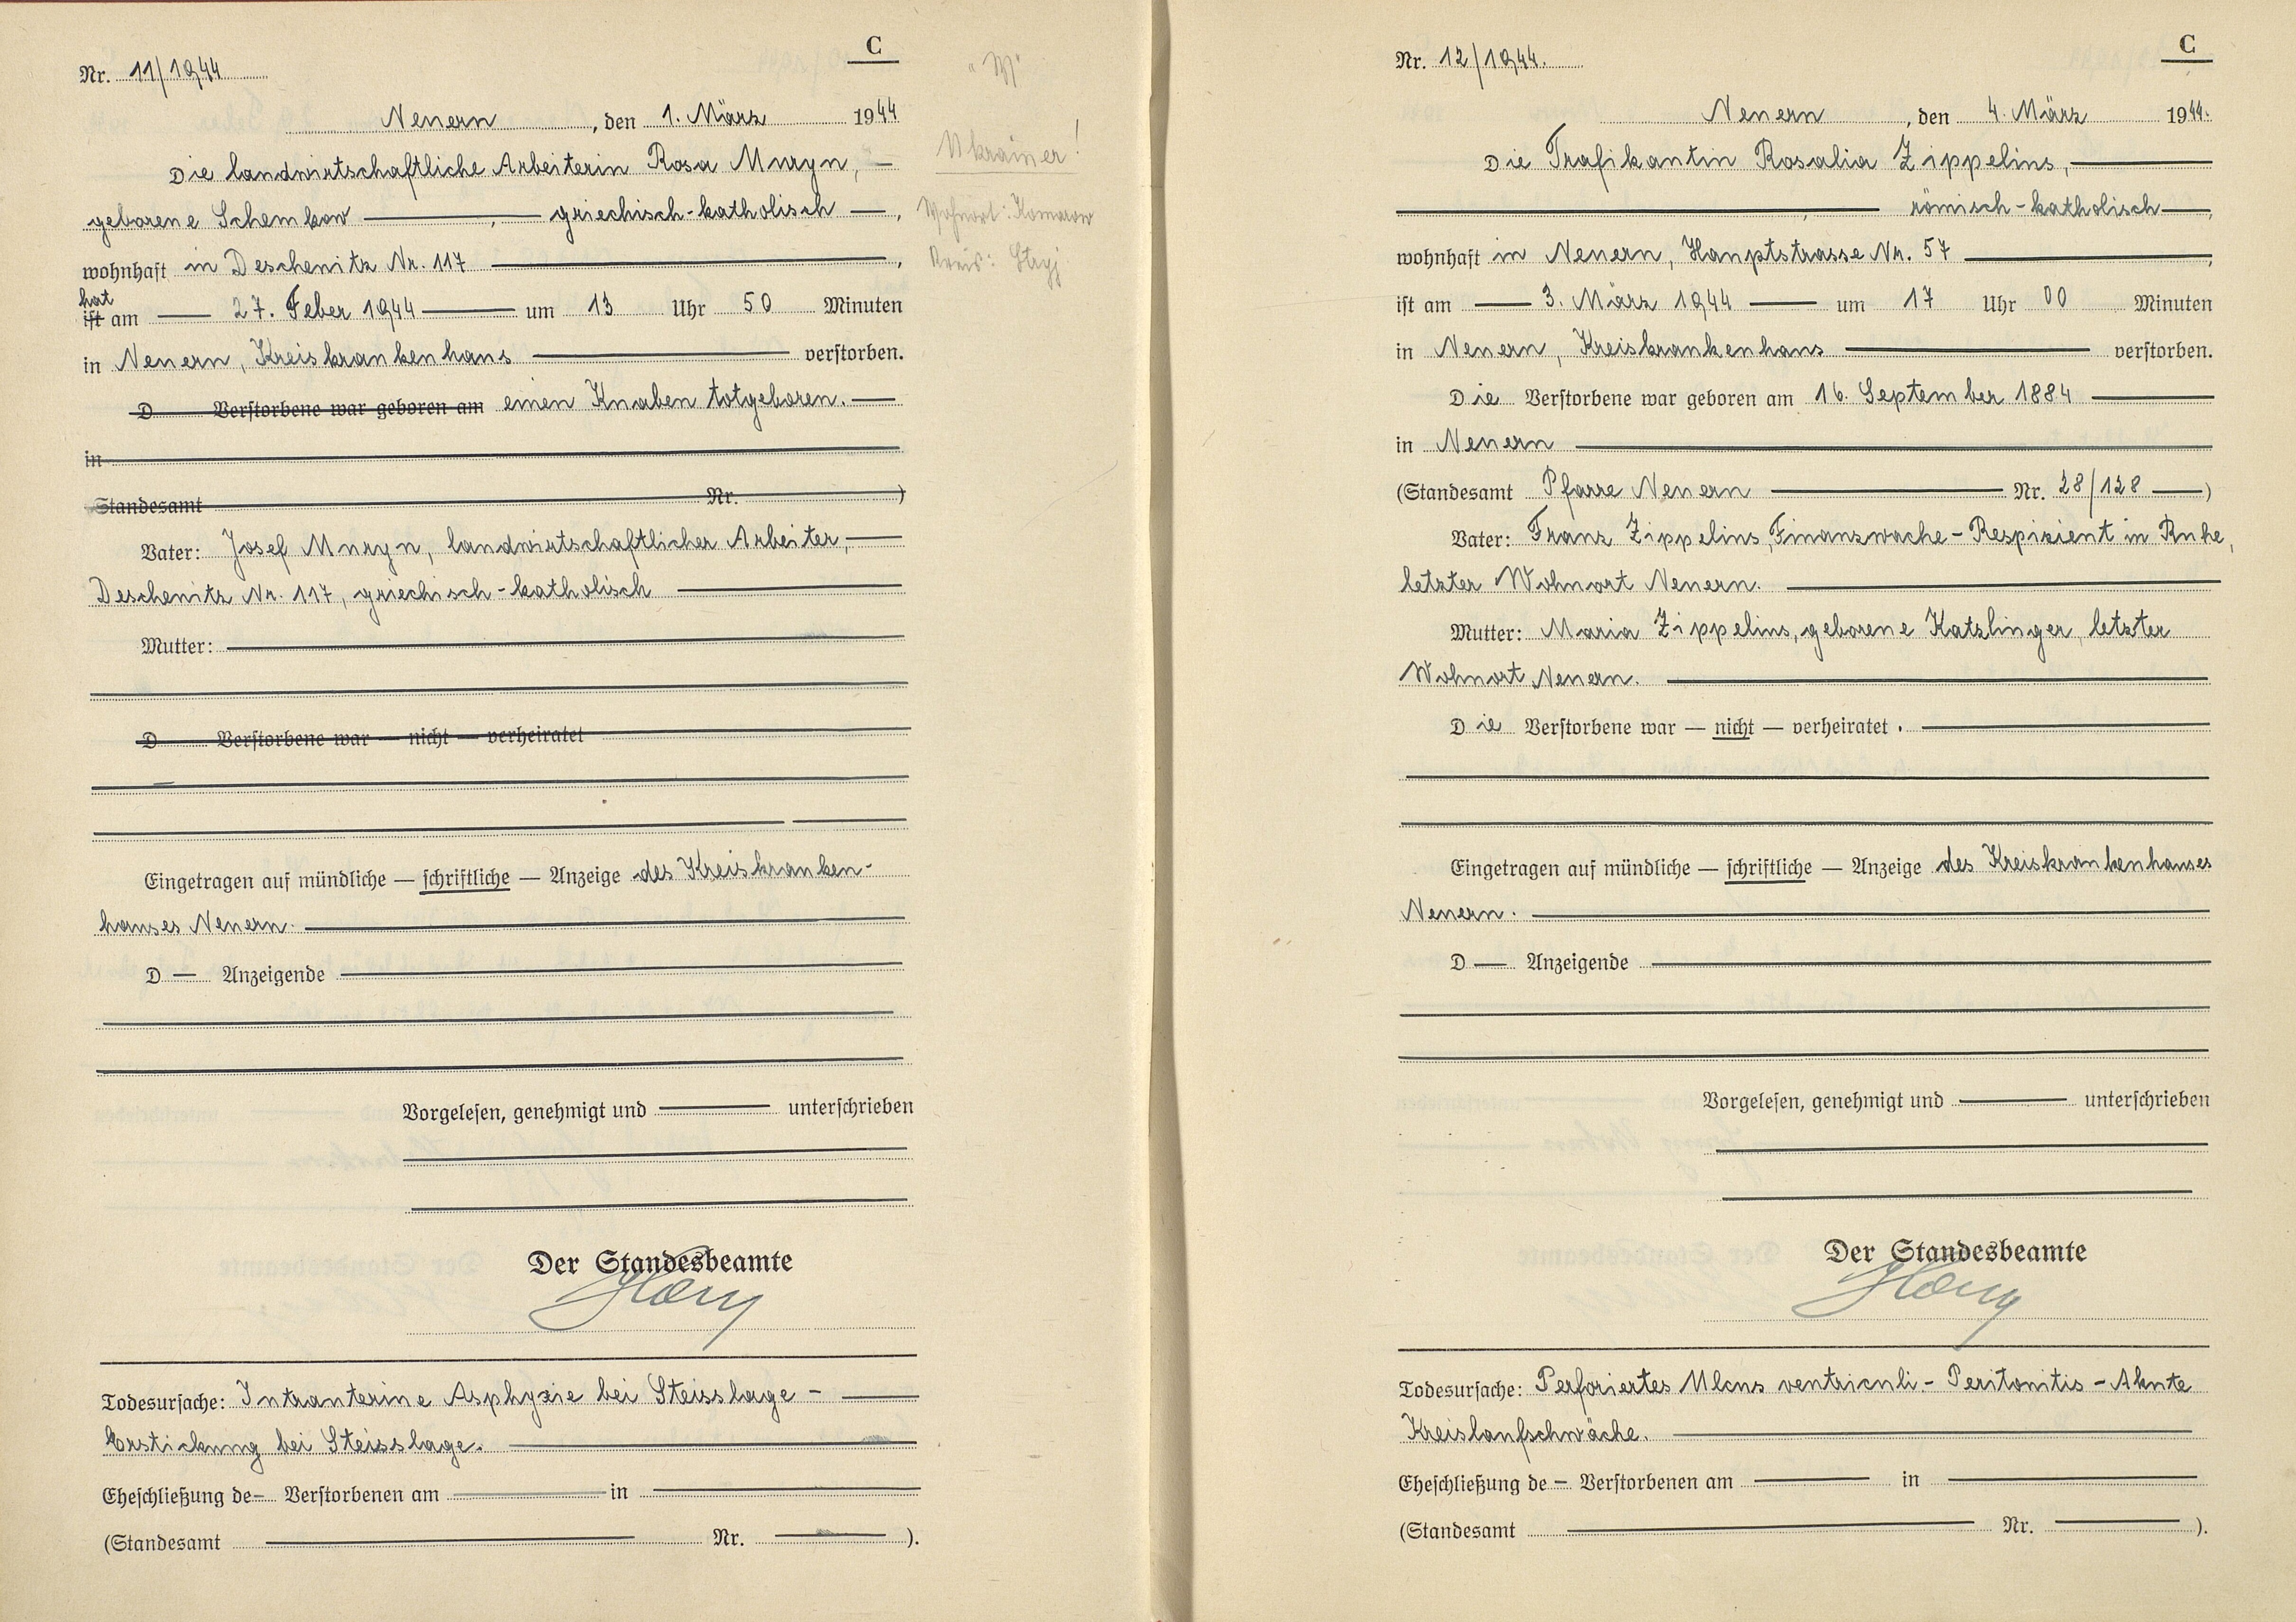 C
Nr. 11/1944
Neuern, den 1. März 1944
Die landwirtschaftliche Arbeiterin Rosa Muryn,
geborene Schemkow, griechisch-katholisch,
wohnhaft in Deschenitz Nr. 117,
hat
ist am 27. Feber 1944 um 13 Uhr 50 Minuten
in Neuern, Kreiskrankenhaus verstorben.
D Verstorbene war geboren am einen Knaben totgeboren.
in
Standesamt Nr. )
Vater: Josef Muryn, landwirtschaftlicher Arbeiter,
Deschenitz Nr. 117, griechisch-katholisch
Mutter:
D Verstorbene war — nicht — verheiratet
Eingetragen auf mündliche — schriftliche — Anzeige des Kreiskranken-
hauses Neuern.
D — Anzeigende
Vorgelesen, genehmigt und unterschrieben
Der Standesbeamte
Todesursache: Intrauterine Asphyxie bei Steisslage -
Erstickung bei Steisslage.
Eheschließung de- Verstorbenen am in
(Standesamt Nr. ).
"W"
Ukrainer!
Wohnort: Komarow
Kreis: Stryj
C
Nr. 12/1944.
Neuern, den 4. März 1944.
Die Trafikantin Rosalia Zippelius,
, römisch-katholisch,
wohnhaft in Neuern, Hauptstrasse Nr. 57,
ist am 3. März 1944 um 17 Uhr 00 Minuten
in Neuern, Kreiskrankenhaus verstorben.
Die Verstorbene war geboren am 16. September 1884
in Neuern
(Standesamt Pfarre Neuern Nr. 28/128 )
Vater: Franz Zippelius, Finanzwache-Respizient in Ruhe,
letzter Wohnort Neuern.
Mutter: Maria Zippelius, geborene Katzlinger, letzter
Wohnort Neuern.
Die Verstorbene war — nicht — verheiratet.
Eingetragen auf mündliche — schriftliche — Anzeige des Kreiskrankenhauses
Neuern.
D — Anzeigende
Vorgelesen, genehmigt und unterschrieben
Der Standesbeamte
Todesursache: Perforiertes Ulcus ventriculi.- Peritonitis - Akute
Kreislaufschwäche.
Eheschließung de - Verstorbenen am in
(Standesamt Nr. ).